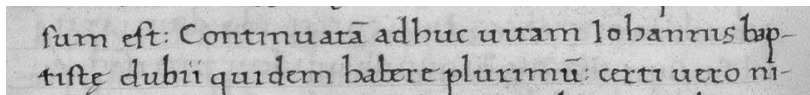 sum est: Continuatā adhuc uitam Iohannis bap-
tistę dubii quidem habere plurimū: certi uero ni-